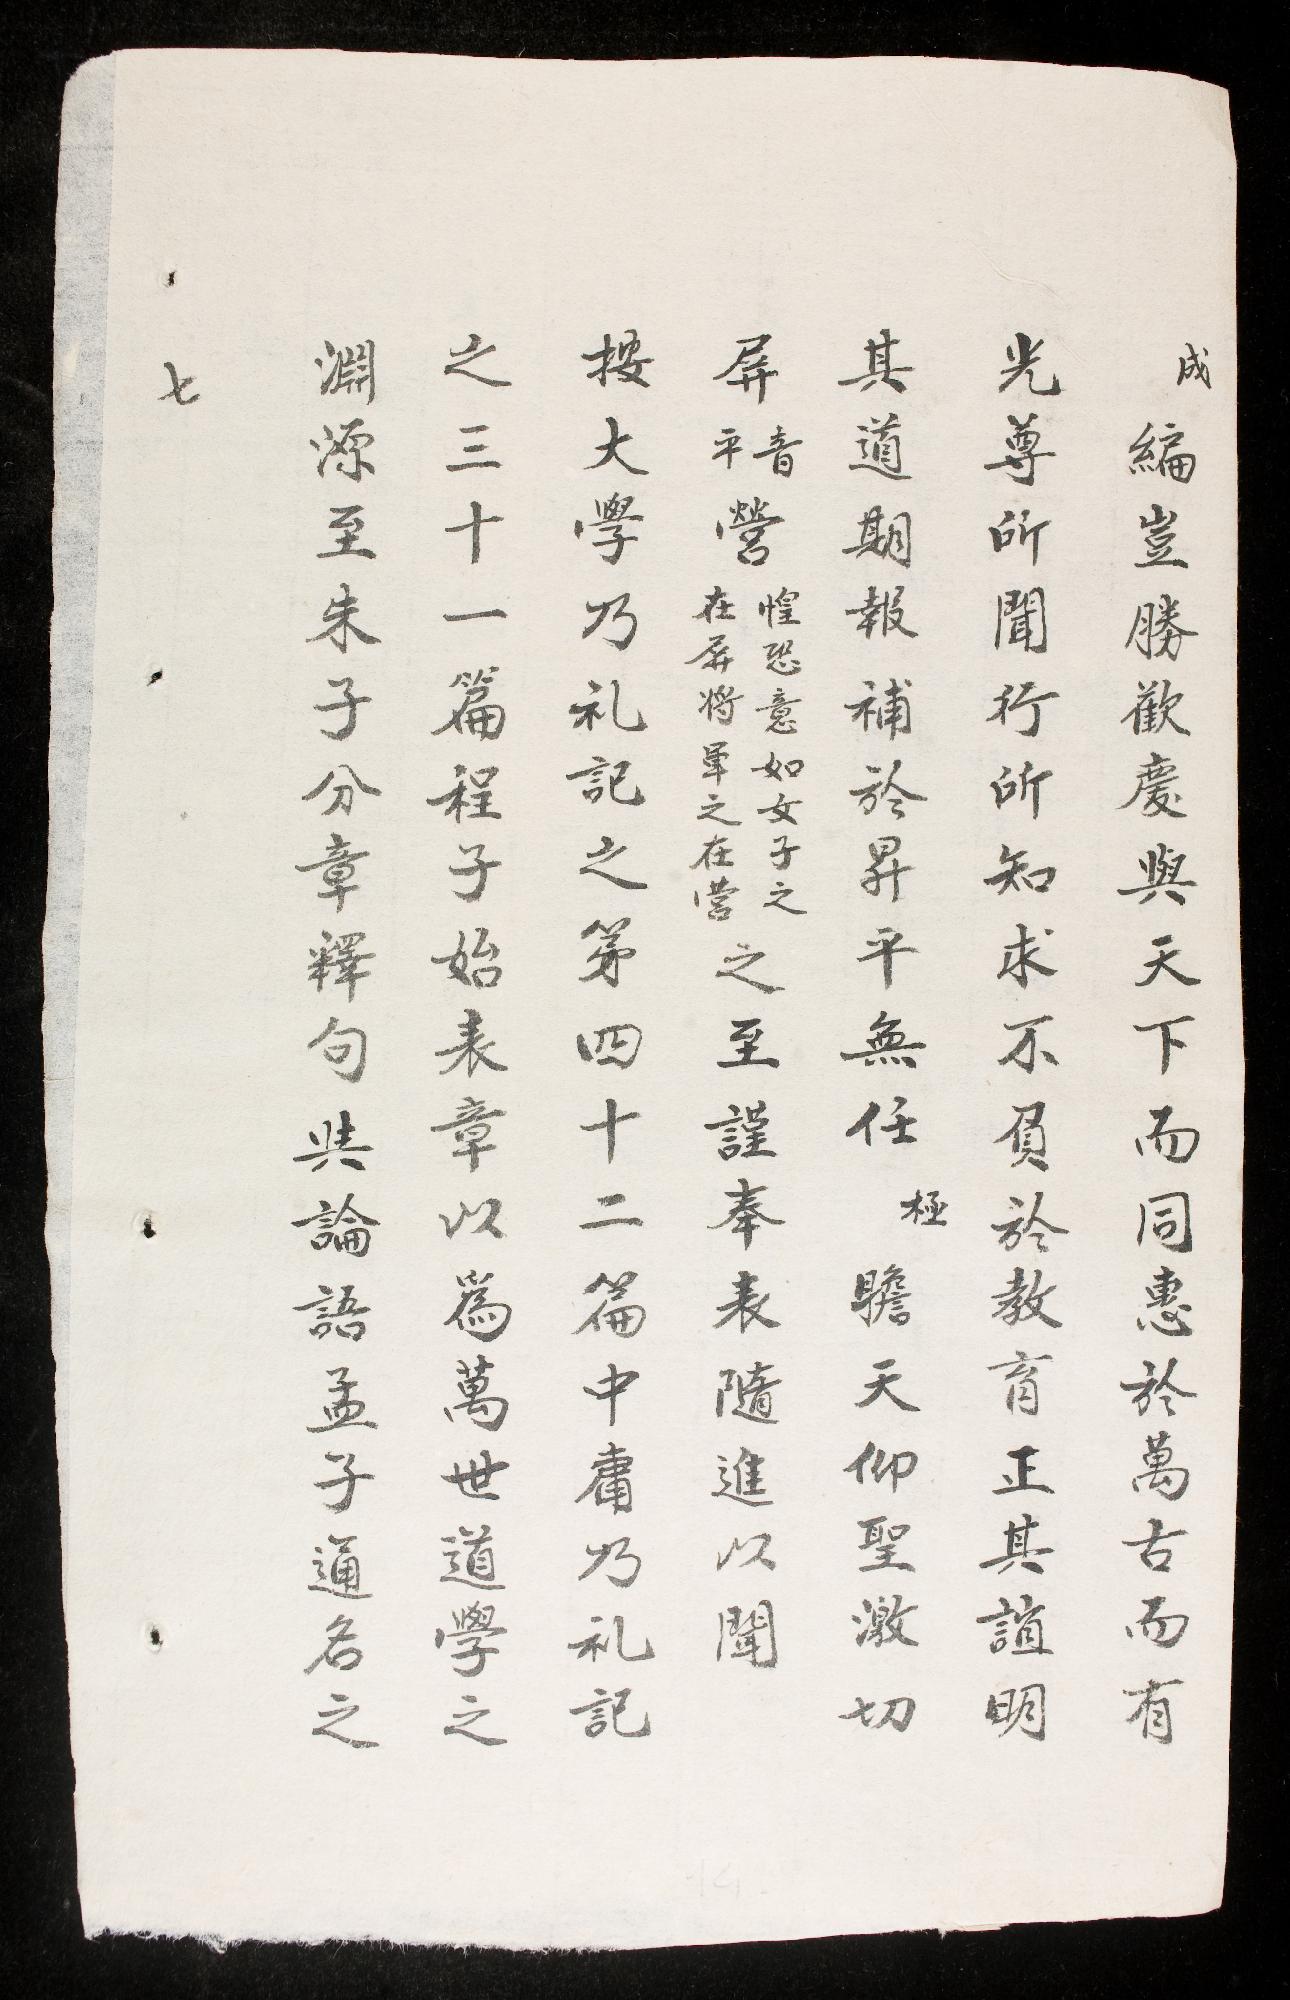 成編豈勝歡慶與天下而同惠於萬古而有
光尊所聞行所知求不負於教育正其誼明
其道期報補於昇平無任極瞻天仰聖激切
屏音平營惶恐意如女子之在屏将軍之在营之至謹奉表隨進以聞
按大學乃礼記之第四十二篇中庸乃礼記
之三十一篇程子始表章以爲萬世道學之
淵源至朱子分章釋句與論語孟子通名之
七